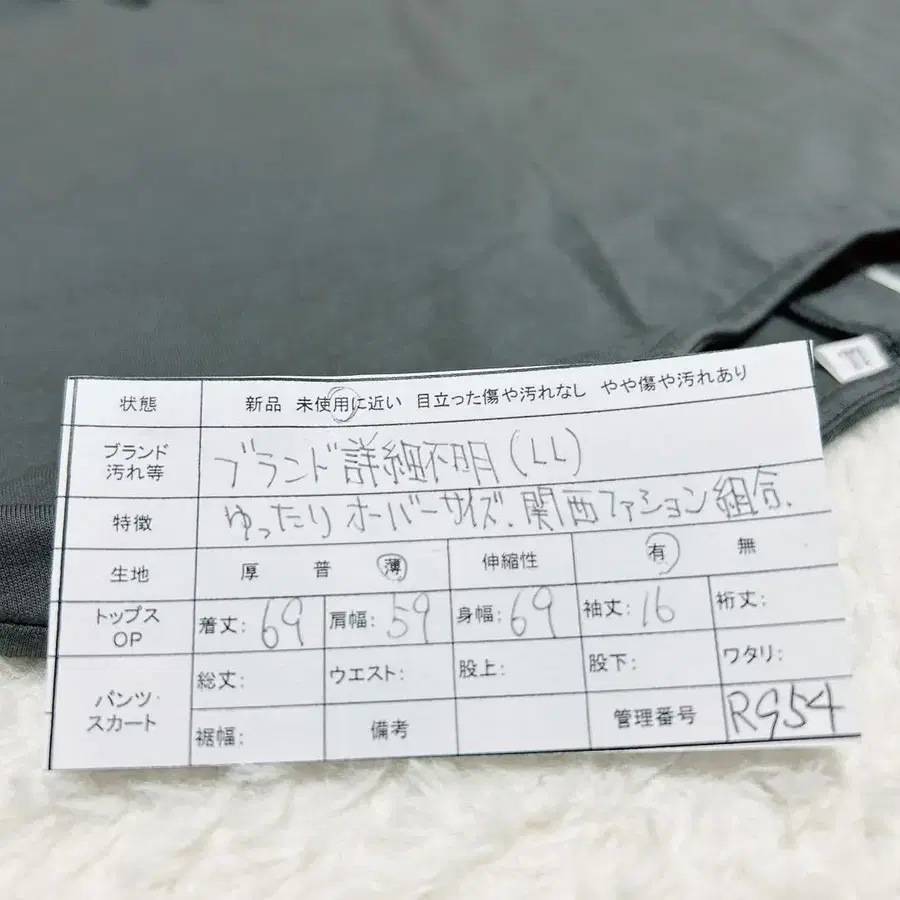 状態 新品 未使用に近い 目立った傷や汚れなし やや傷や汚れあり
ブランド
汚れ等 ブランド詳細不明(LL)
特徴 ゆったりオーバーサイズ、関西ファション組合、
生地 厚 普 薄 伸縮性 有 無
トップス
OP 着丈: 69 肩幅: 59 身幅: 69 袖丈: 16 裄丈:
パンツ
スカート 総丈: ウエスト: 股上: 股下: ワタリ:
裾幅: 備考 管理番号 R954